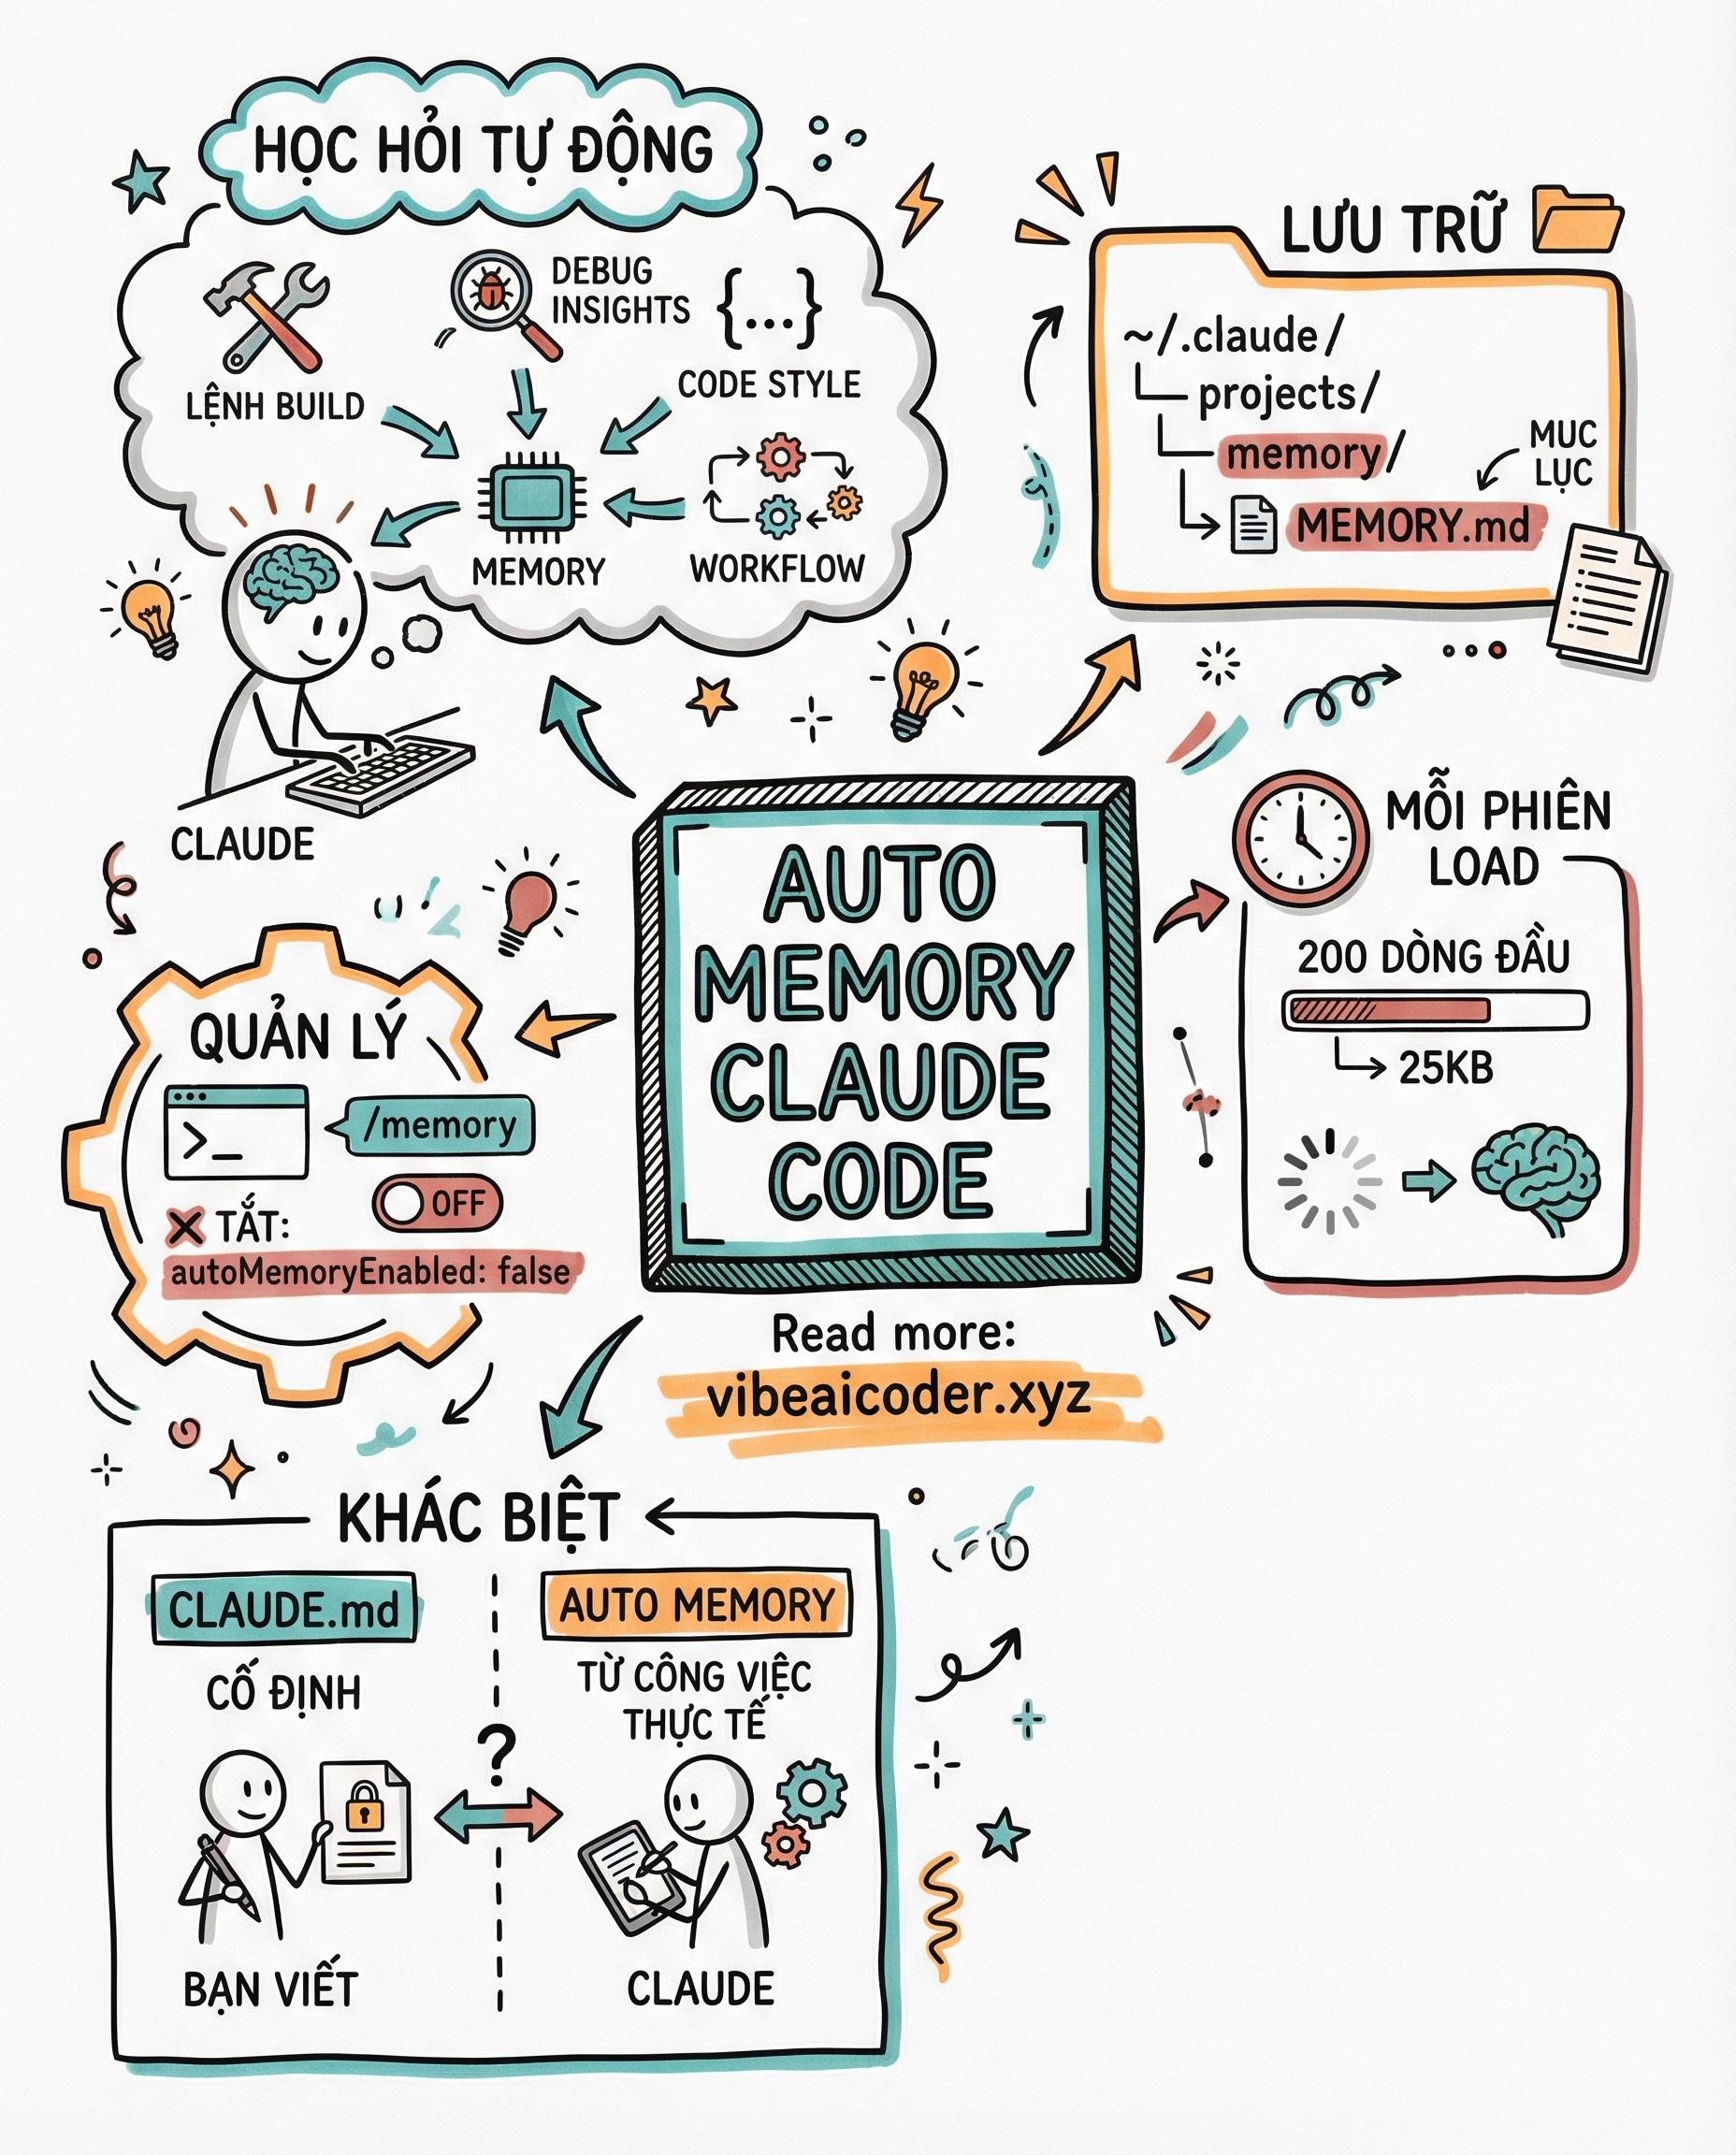 HỌC HỎI TỰ ĐỘNG
LỆNH BUILD
DEBUG
INSIGHTS
{...}
CODE STYLE
MEMORY
WORKFLOW
CLAUDE
LƯU TRỮ
~/.claude/
projects/
memory/
MEMORY.md
MUC
LỤC
AUTO
MEMORY
CLAUDE
CODE
MỖI PHIÊN
LOAD
200 DÒNG ĐẦU
25KB
QUẢN LÝ
>_
/memory
OFF
TẮT:
autoMemoryEnabled: false
Read more:
vibeaicoder.xyz
KHÁC BIỆT
CLAUDE.md
CỐ ĐỊNH
BẠN VIẾT
?
AUTO MEMORY
TỪ CÔNG VIỆC
THỰC TẾ
CLAUDE